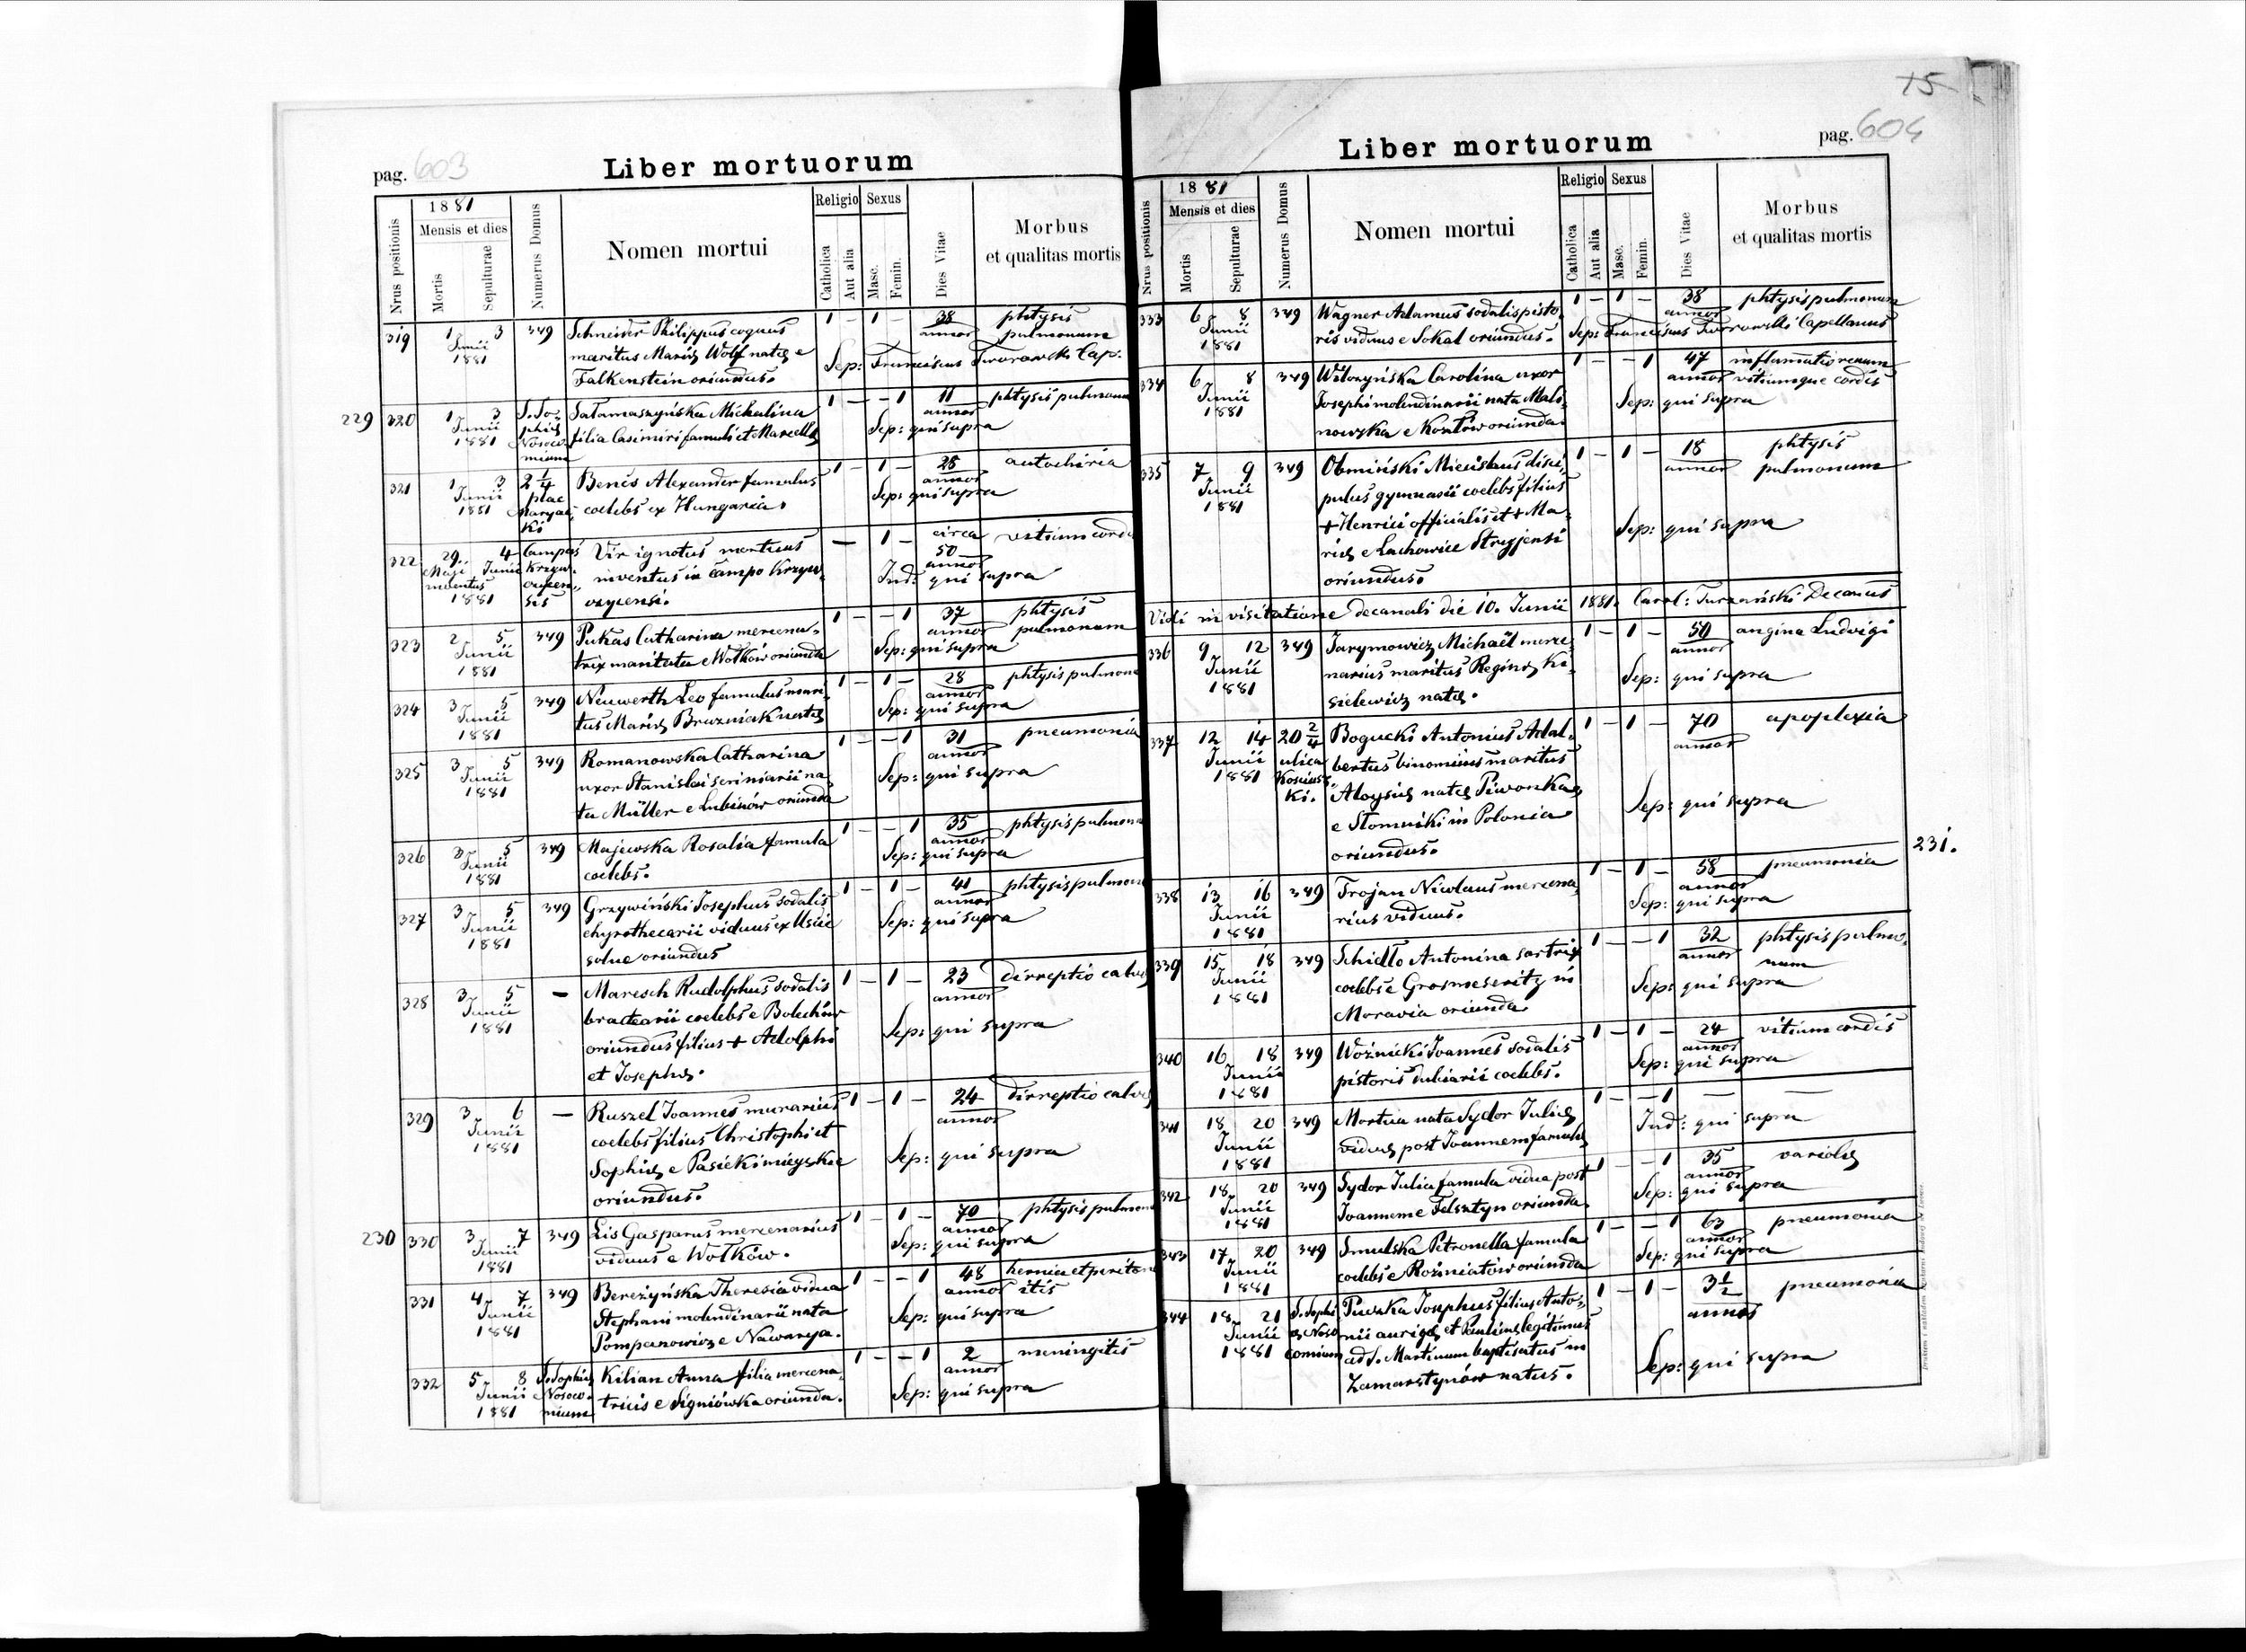 pag. 603
Liber mortuorum
Nrus positionis
1881
Mensis et dies
Mortis
Sepulturae
Numerus Domus
Nomen mortui
Religio
Catholica
Aut alia
Sexus
Masc.
Femin.
Dies Vitae
Morbus
et qualitas mortis
319 1 3 349 Schneider Philippus coquus 1 – 1 – 38 phtysis
Junii maritus Mariæ Wolf natæ e annor pulmonum
1881 Falkenstein oriundus. Sep: Franciscus Tworowski Cap.
229 320 1 3 S. So- Sałamaszyńska Michalina 1 – – 1 11 phtysis pulmonum
Junii phiæ filia Casimiri famuli et Marcellæ annor
1881 Nosoco- Sep: qui supra
mium
321 1 3 2 1/4 Benes Alexander famulus 1 – 1 – 28 autochiria
Junii plac coelebs ex Hungaria. annor
1881 Maryac- Sep: qui supra
ki
322 29 4 Campus Vir ignotus mortuus – 1 – circa vitium cordis
Maji Junii Krzyw- inventus in campo Krzyw- 50
1881 czycen- czycensi. annor
sis Ind: qui supra
323 2 5 349 Pukas Catharina mercena- 1 – – 1 37 phtysis
Junii trix maritata e Wołków oriunda annor pulmonum
1881 Sep: qui supra
324 3 5 349 Neuwerth Leo famulus mari- 1 – 1 – 28 phtysis pulmonum
Junii tus Mariæ Bruzniak natæ annor
1881 Sep: qui supra
325 3 5 349 Romanowska Catharina 1 – – 1 31 pneumonia
Junii uxor Stanislai scriniarii na- annor
1881 ta Müller e Lubinów oriunda Sep: qui supra
326 3 5 349 Majewska Rosalia famula 1 – – 1 35 phtysis pulmonum
Junii coelebs. annor
1881 Sep: qui supra
327 3 5 349 Grzywiński Josephus sodalis 1 – 1 – 41 phtysis pulmonum
Junii chyrothecarii viduus ex Uście annor
1881 solne oriundus Sep: qui supra
328 3 5 – Maresch Rudolphus sodalis 1 – 1 – 23 dirreptio calvæ
Junii bractearii coelebs e Bolechów annor
1881 oriundus filius + Adolphi Sep: qui supra
et Josephæ.
329 3 6 – Ruszel Joannes murarius 1 – 1 – 24 dirreptio calvæ
Junii coelebs filius Christophi et annor
1881 Sophiæ e Pasieki miejskie Sep: qui supra
oriundus.
230 330 3 7 349 Lis Gasparus mercenarius 1 – 1 – 70 phtysis pulmonum
Junii viduus e Wołków. annor
1881 Sep: qui supra
331 4 7 349 Bereżyńska Theresia vidua 1 – – 1 48 hernia et periton-
Junii Stephani molendinarii nata annor itis
1881 Pompanowicz e Nawarya. Sep: qui supra
332 5 8 S. Sophiæ Kilian Anna filia mercena- 1 – – 1 2 meningitis
Junii Nosoco- tricis e Signiówka oriunda. annor
1881 mium Sep: qui supra
75
pag. 604
Liber mortuorum
Nrus positionis
1881
Mensis et dies
Mortis
Sepulturae
Numerus Domus
Nomen mortui
Religio
Catholica
Aut alia
Sexus
Masc.
Femin.
Dies Vitae
Morbus
et qualitas mortis
333 6 8 349 Wagner Adamus sodalis pisto- 1 – 1 – 38 phtysis pulmonum
Junii ris viduus e Sokal oriundus. annor
1881 Sep: Franciscus Tworowski Capellanus
334 6 8 349 Wilczyńska Carolina uxor 1 – – 1 47 inflammatio renum
Junii Josephi molendinarii nata Mali- annor vitiumque cordis
1881 nowska e Kozłów oriunda. Sep: qui supra
335 7 9 349 Obmiński Miecislaus disci- 1 – 1 – 18 phtysis
Junii pulus gymnasii coelebs filius annor pulmonum
1881 + Henrici officialis et + Ma-
riæ e Lachowice Stryjensi Sep: qui supra
oriundus.
Vidi in visitatione decanali die 10. Junii 1881. Carol: Turzański Decanus
336 9 12 349 Jarymowicz Michaël merce- 1 – 1 – 50 angina Ludvigi
Junii narius maritus Reginæ Ki- annor
1881 sielewicz natæ. Sep: qui supra
337 12 14 20 2/4 Bogucki Antonius Adal- 1 – 1 – 70 apoplexia
Junii ulica bertus binominis maritus annor
1881 Kościusz- Aloysiæ natæ Piwonka
ki. e Słomniki in Polonia Sep: qui supra
oriundus.
231.
338 13 16 349 Trojan Nicolaus mercena- 1 – 1 – 58 pneumonia
Junii rius viduus. annor
1881 Sep: qui supra
339 15 18 349 Schidlo Antonina sartrix 1 – – 1 32 phtysis pulmo-
Junii coelebs e Grosmeseritz in annor num
1881 Moravia oriunda Sep: qui supra
340 16 18 349 Woźnicki Joannes sodalis 1 – 1 – 24 vitium cordis
Junii pistoris dulciarii coelebs. annor
1881 Sep: qui supra
341 18 20 349 Mortua nata Sydor Juliæ 1 – – 1 – –
Junii viduæ post Joannem famulæ Ind: qui supra
1881
342 18 20 349 Sydor Julia famula vidua post 1 – – 1 35 variolæ
Junii Joannem e Felsztyn oriunda. annor
1881 Sep: qui supra
343 17 20 349 Smulska Petronella famula 1 – – 1 63 pneumonia
Junii coelebs e Rożniatów oriunda annor
1881 Sep: qui supra
344 18 21 S. Sophi- Puszka Josephus filius Anto- 1 – 1 – 3 1/2 pneumonia
Junii æ Noso- nii aurigæ et Paulinæ legitimus annor
1881 comium ad S. Martinum baptisatus in
Zamarstynów natus. Sep: qui supra